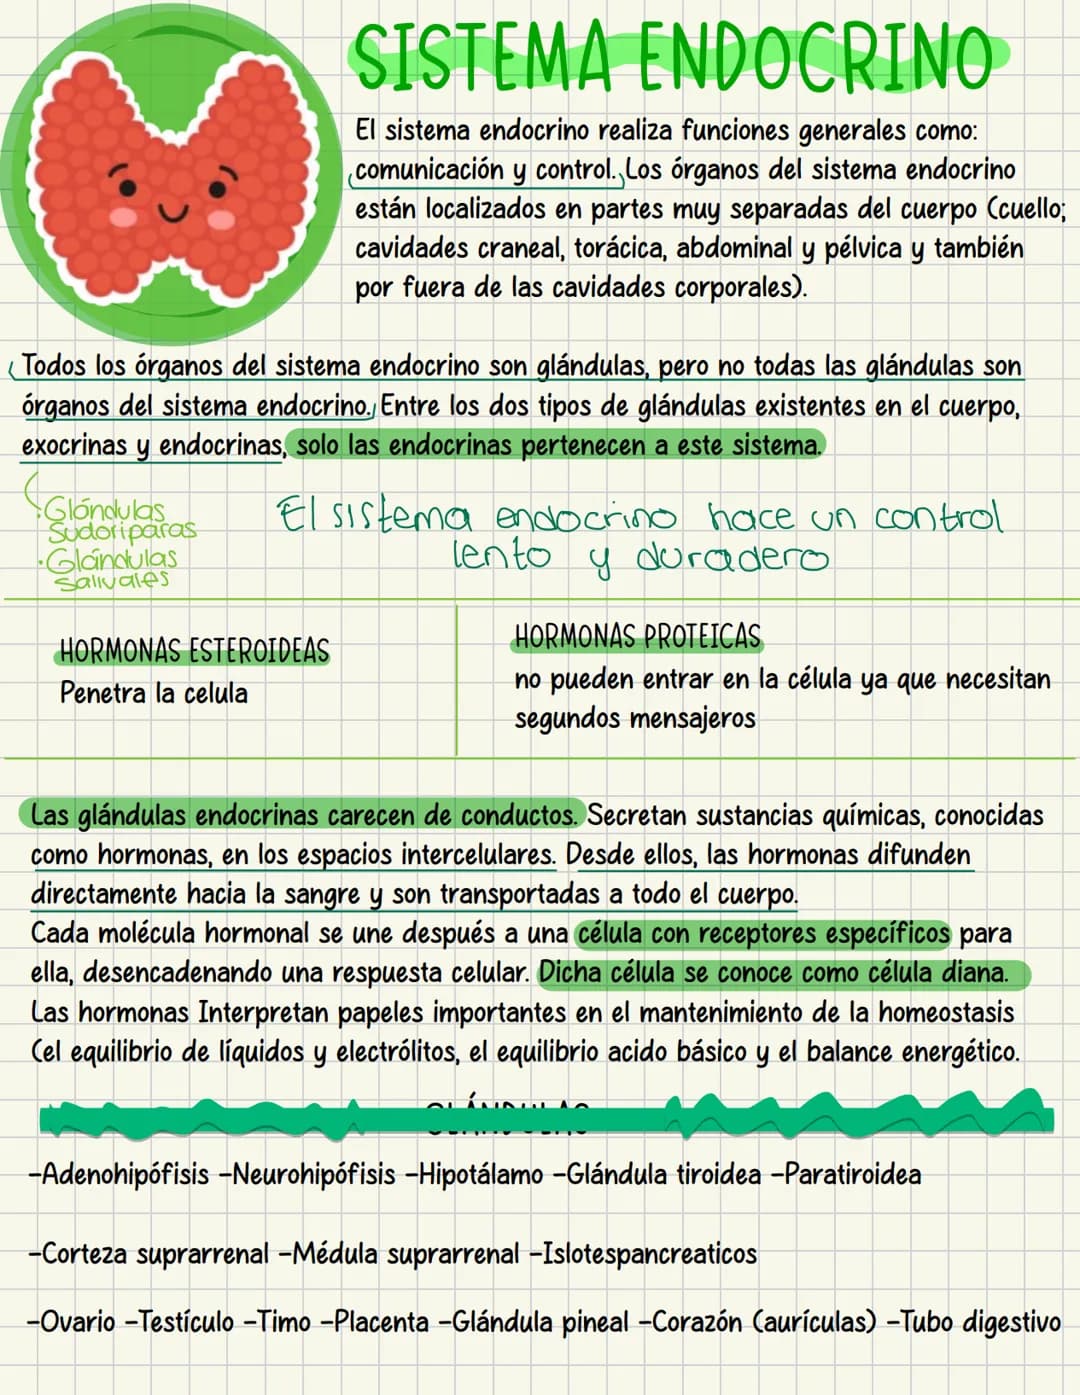 SISTEMA ENDOCRINO
El sistema endocrino realiza funciones generales como:
comunicación y control. Los órganos del sistema endocrino
están localizados en partes muy separadas del cuerpo (cuello;
cavidades craneal, torácica, abdominal y pélvica y también
por fuera de las cavidades corporales).
Todos los órganos del sistema endocrino son glándulas, pero no todas las glándulas son
órganos del sistema endocrino. Entre los dos tipos de glándulas existentes en el cuerpo,
exocrinas y endocrinas, solo las endocrinas pertenecen a este sistema.
·Glándulas
Sudoriparas
·Glándulas
Salivales
El sistema endocrino hace un control
lento y duradero
HORMONAS ESTEROIDEAS
Penetra la celula
HORMONAS PROTEICAS
no pueden entrar en la célula ya que necesitan
segundos mensajeros
Las glándulas endocrinas carecen de conductos. Secretan sustancias químicas, conocidas
como hormonas, en los espacios intercelulares. Desde ellos, las hormonas difunden
directamente hacia la sangre y son transportadas a todo el cuerpo.
Cada molécula hormonal se une después a una célula con receptores específicos para
ella, desencadenando una respuesta celular. Dicha célula se conoce como célula diana.
Las hormonas Interpretan papeles importantes en el mantenimiento de la homeostasis
(el equilibrio de líquidos y electrólitos, el equilibrio acido básico y el balance energético.
GLÁNDULAS
-Adenohipófisis -Neurohipófisis -Hipotálamo -Glándula tiroidea -Paratiroidea
-Corteza suprarrenal -Médula suprarrenal -Islotespancreaticos
-Ovario -Testículo -Timo -Placenta -Glándula pineal -Corazón (aurículas) -Tubo digestivo